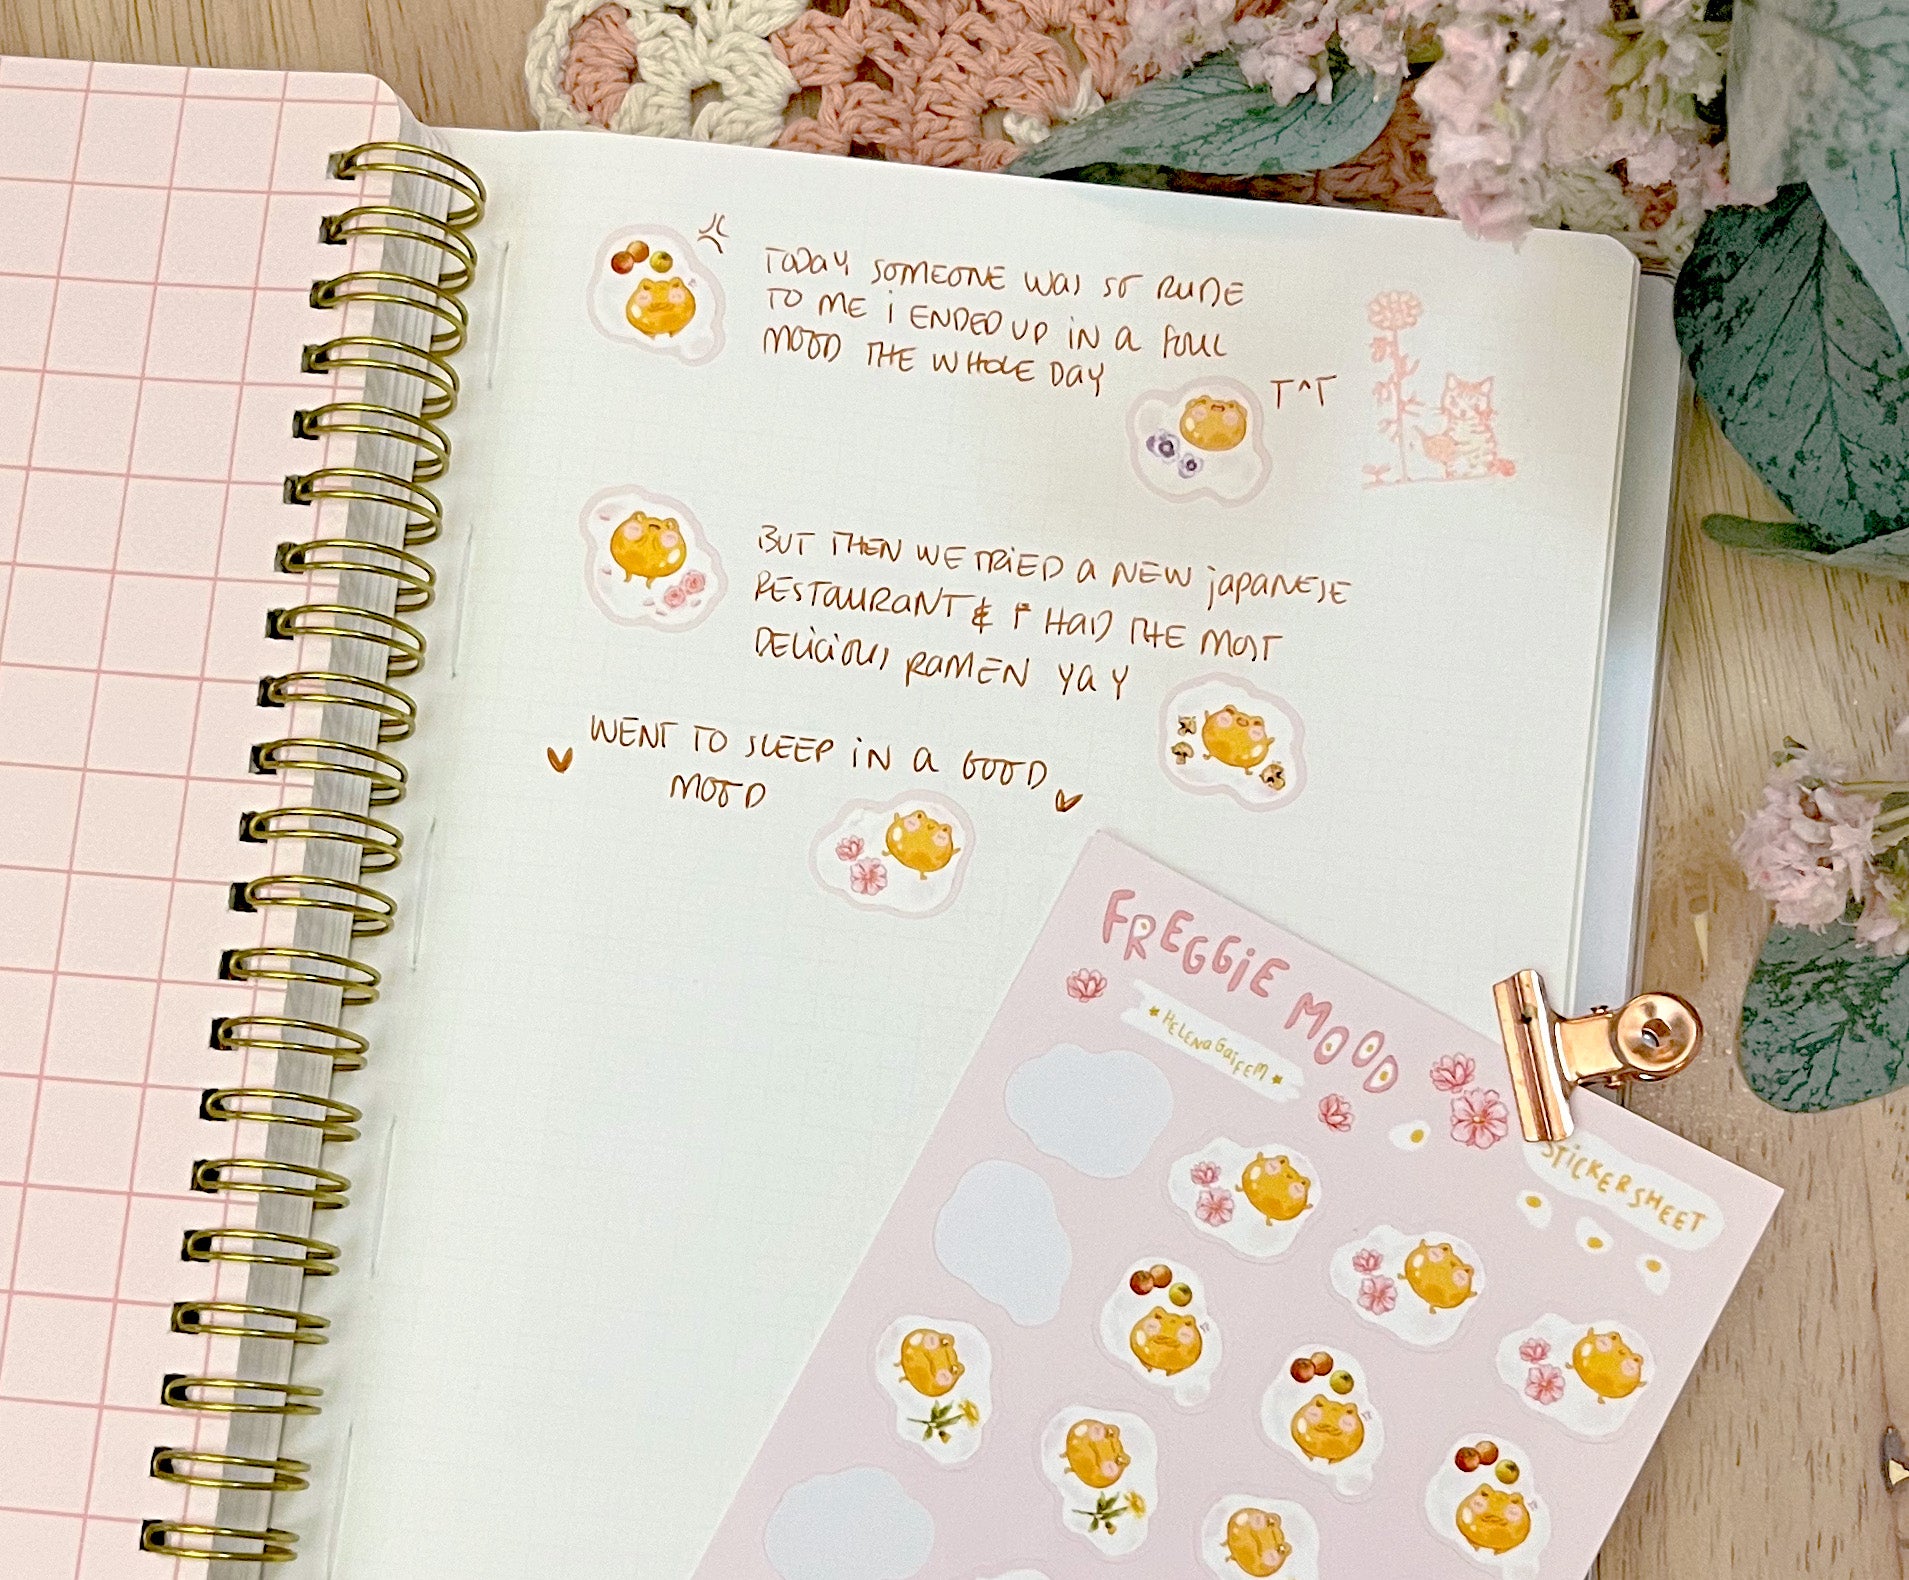 Today someone was so rude
to me i ended up in a foul
mood the whole day
T^T
But then we tried a new japanese
restaurant & I had the most
delicious ramen yay
Went to sleep in a good
mood
FREGGIE MOOD
HELENAGAIFEM
STICKERSHEET